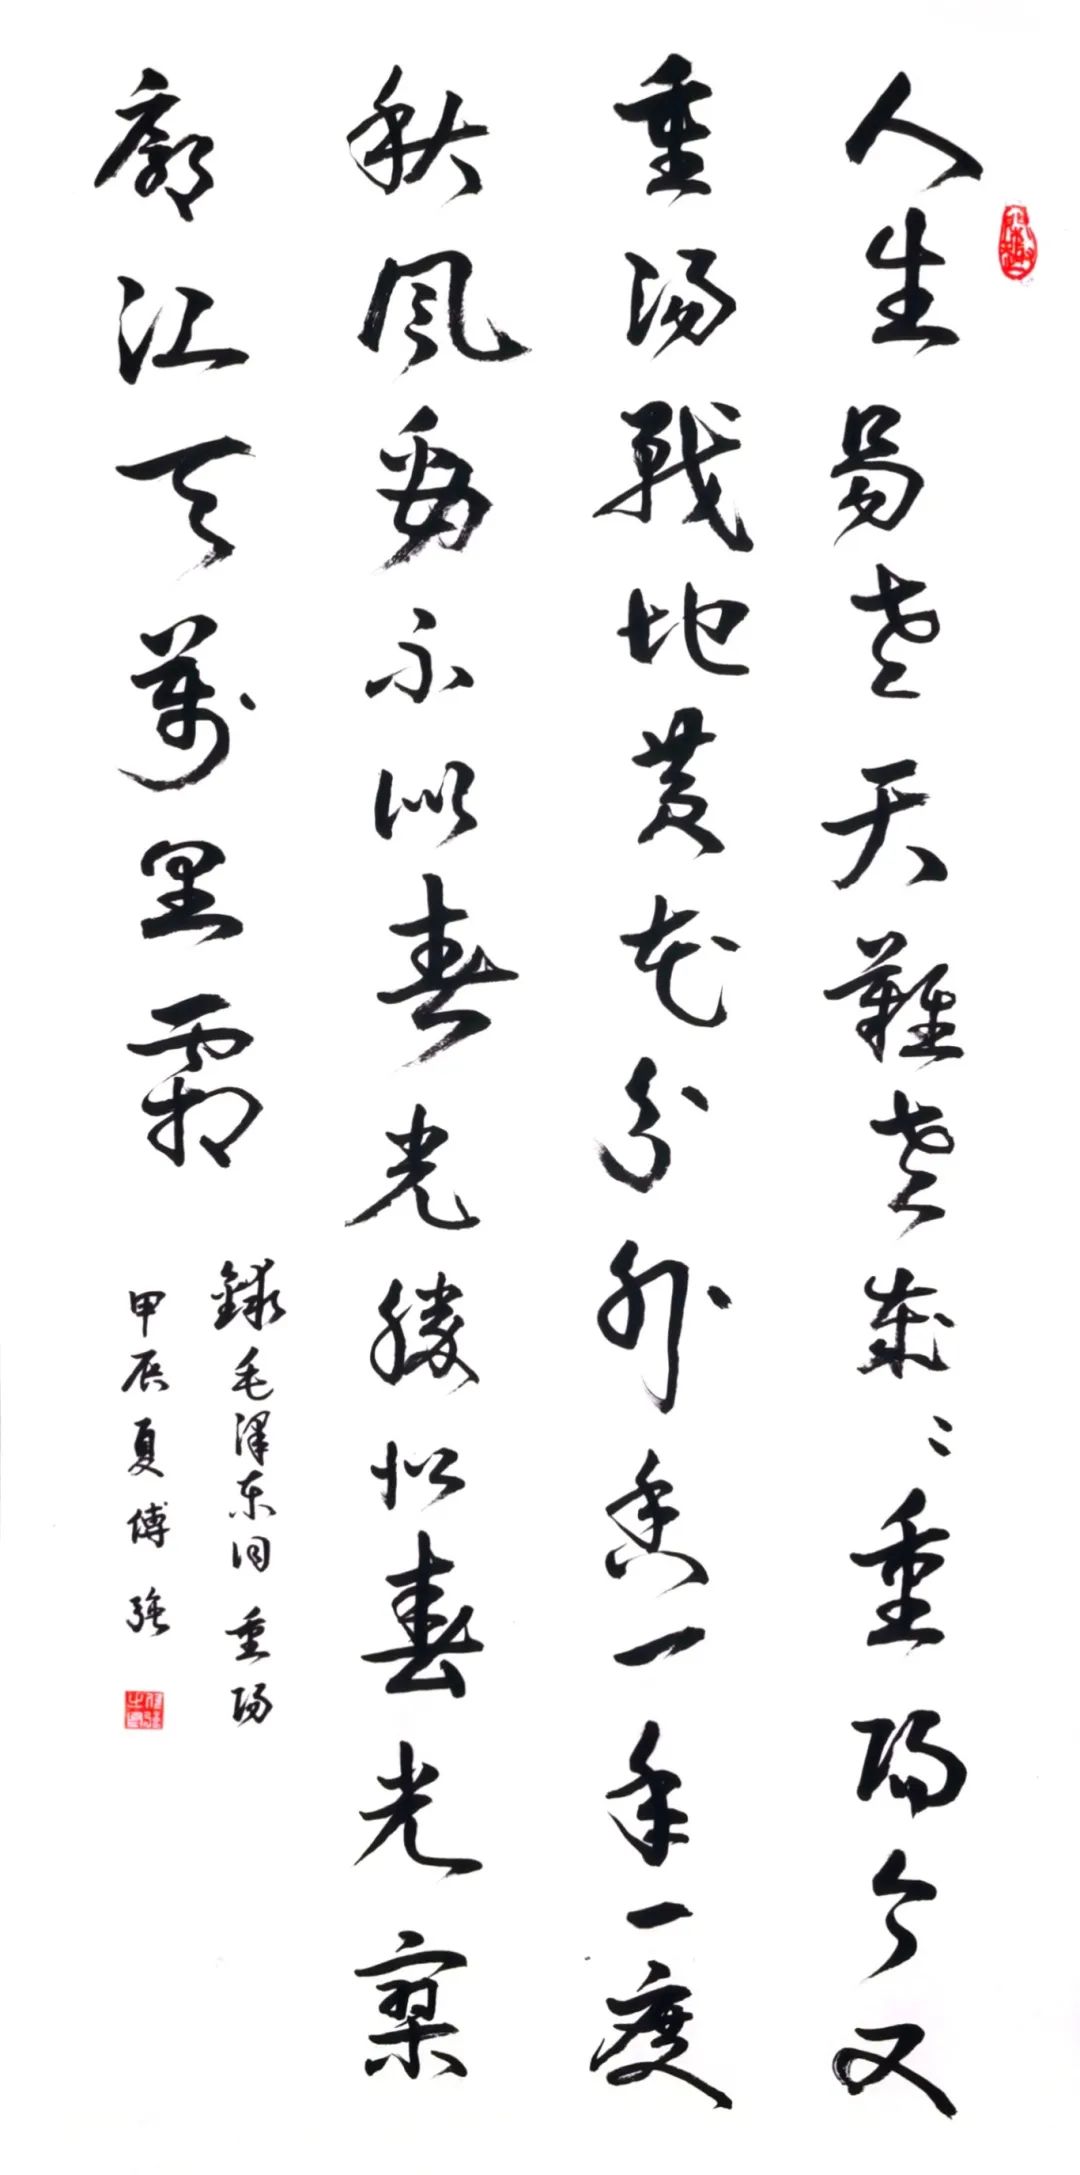 人生易老天難老歲〻重陽今又
重陽戰地黃花分外香一年一度
秋風勁不似春光勝似春光寥
廓江天萬里霜
錄毛澤东詞 重陽
甲辰夏傅強